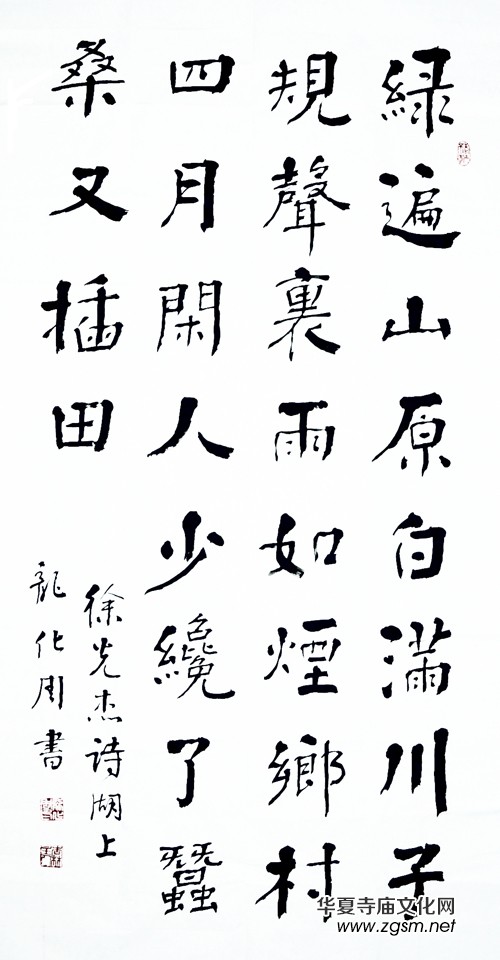 緑遍山原白滿川子
規聲裏雨如煙鄉村
四月閑人少纔了蠶
桑又插田
徐光杰詩湖上
龍化周書
华夏寺庙文化网
www.zgsm.net